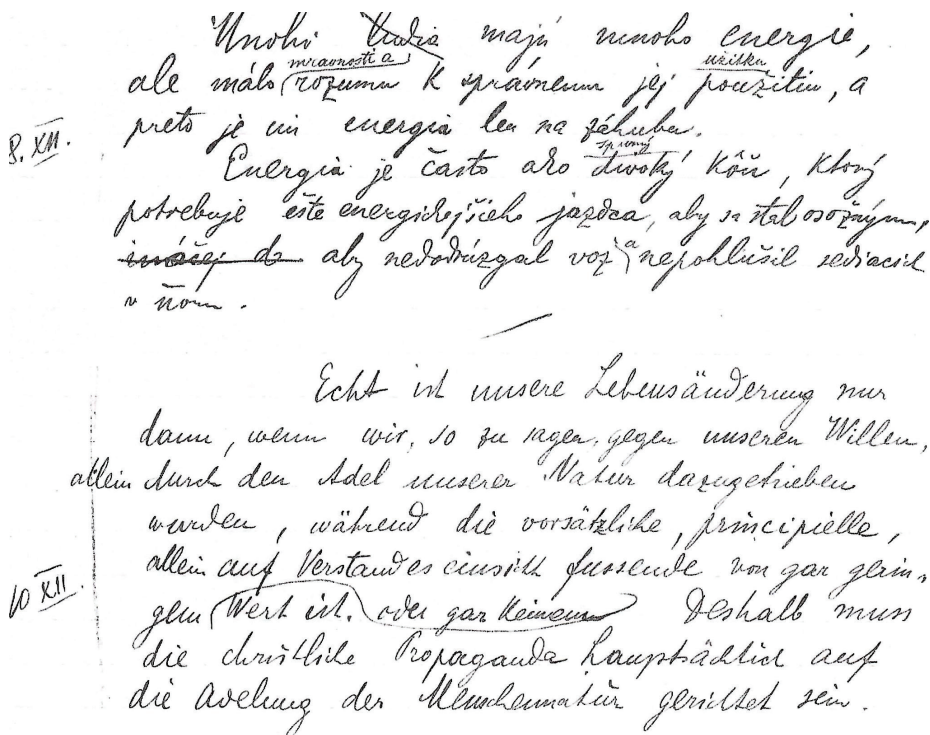 Mnohí ľudia majú mnoho energie,
mravnosti a užitku
ale málo rozumu k správnemu jej použitiu, a
preto je im energia len na záhubu.
8. XII.
Energia je často ako divoký kôň, ktorý
potrebuje ešte energickejšieho jazdca, aby sa stal osožným,
ináčej aby nedodrúzgal voz a nepohlušil sediacich
v ňom.
Echt ist unsere Lebensänderung nur
dann, wenn wir, so zu sagen, gegen unseren Willen,
allein durch den Adel unserer Natur dazugetrieben
wurden, während die vorsätzliche, principielle,
allein auf Verstandeseinsicht fussende von gar gerin-
10 XII.
gem Wert ist. oder gar keinem Deshalb muss
die christliche Propaganda hauptsächlich auf
die Adelung der Menschennatur gerichtet sein.